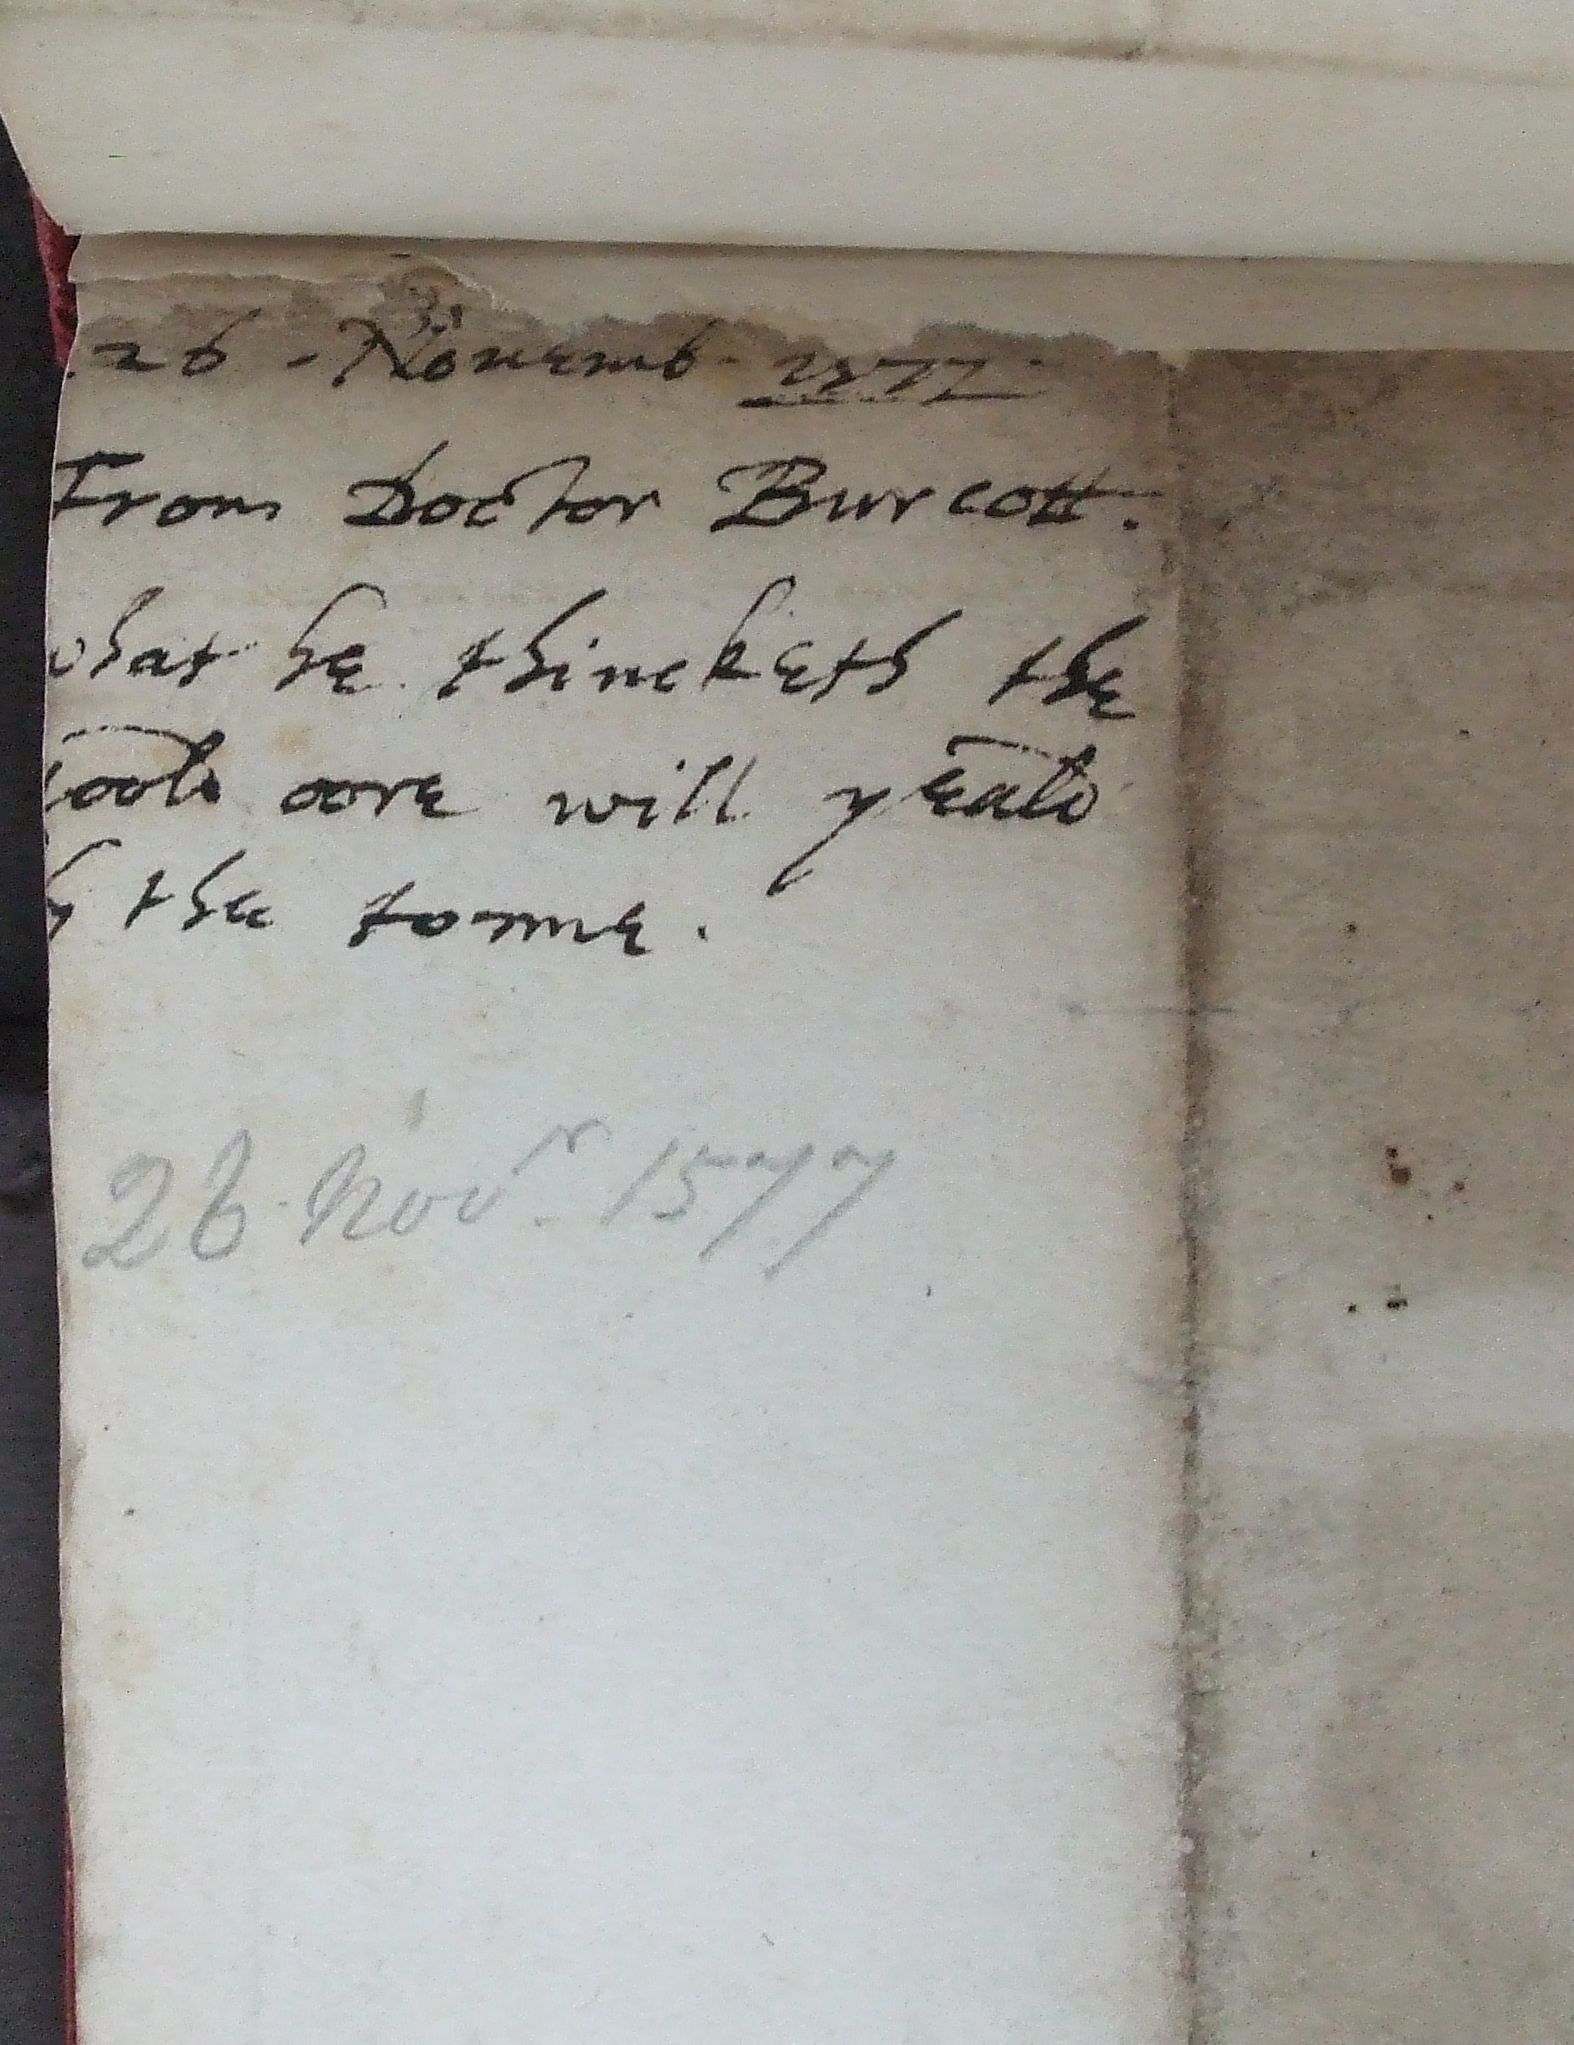 26 . Nouemb. 1577.
From Doctor Burcott.
what he thincketh the
oore will yeald
the tonne.
26 Novr. 1577